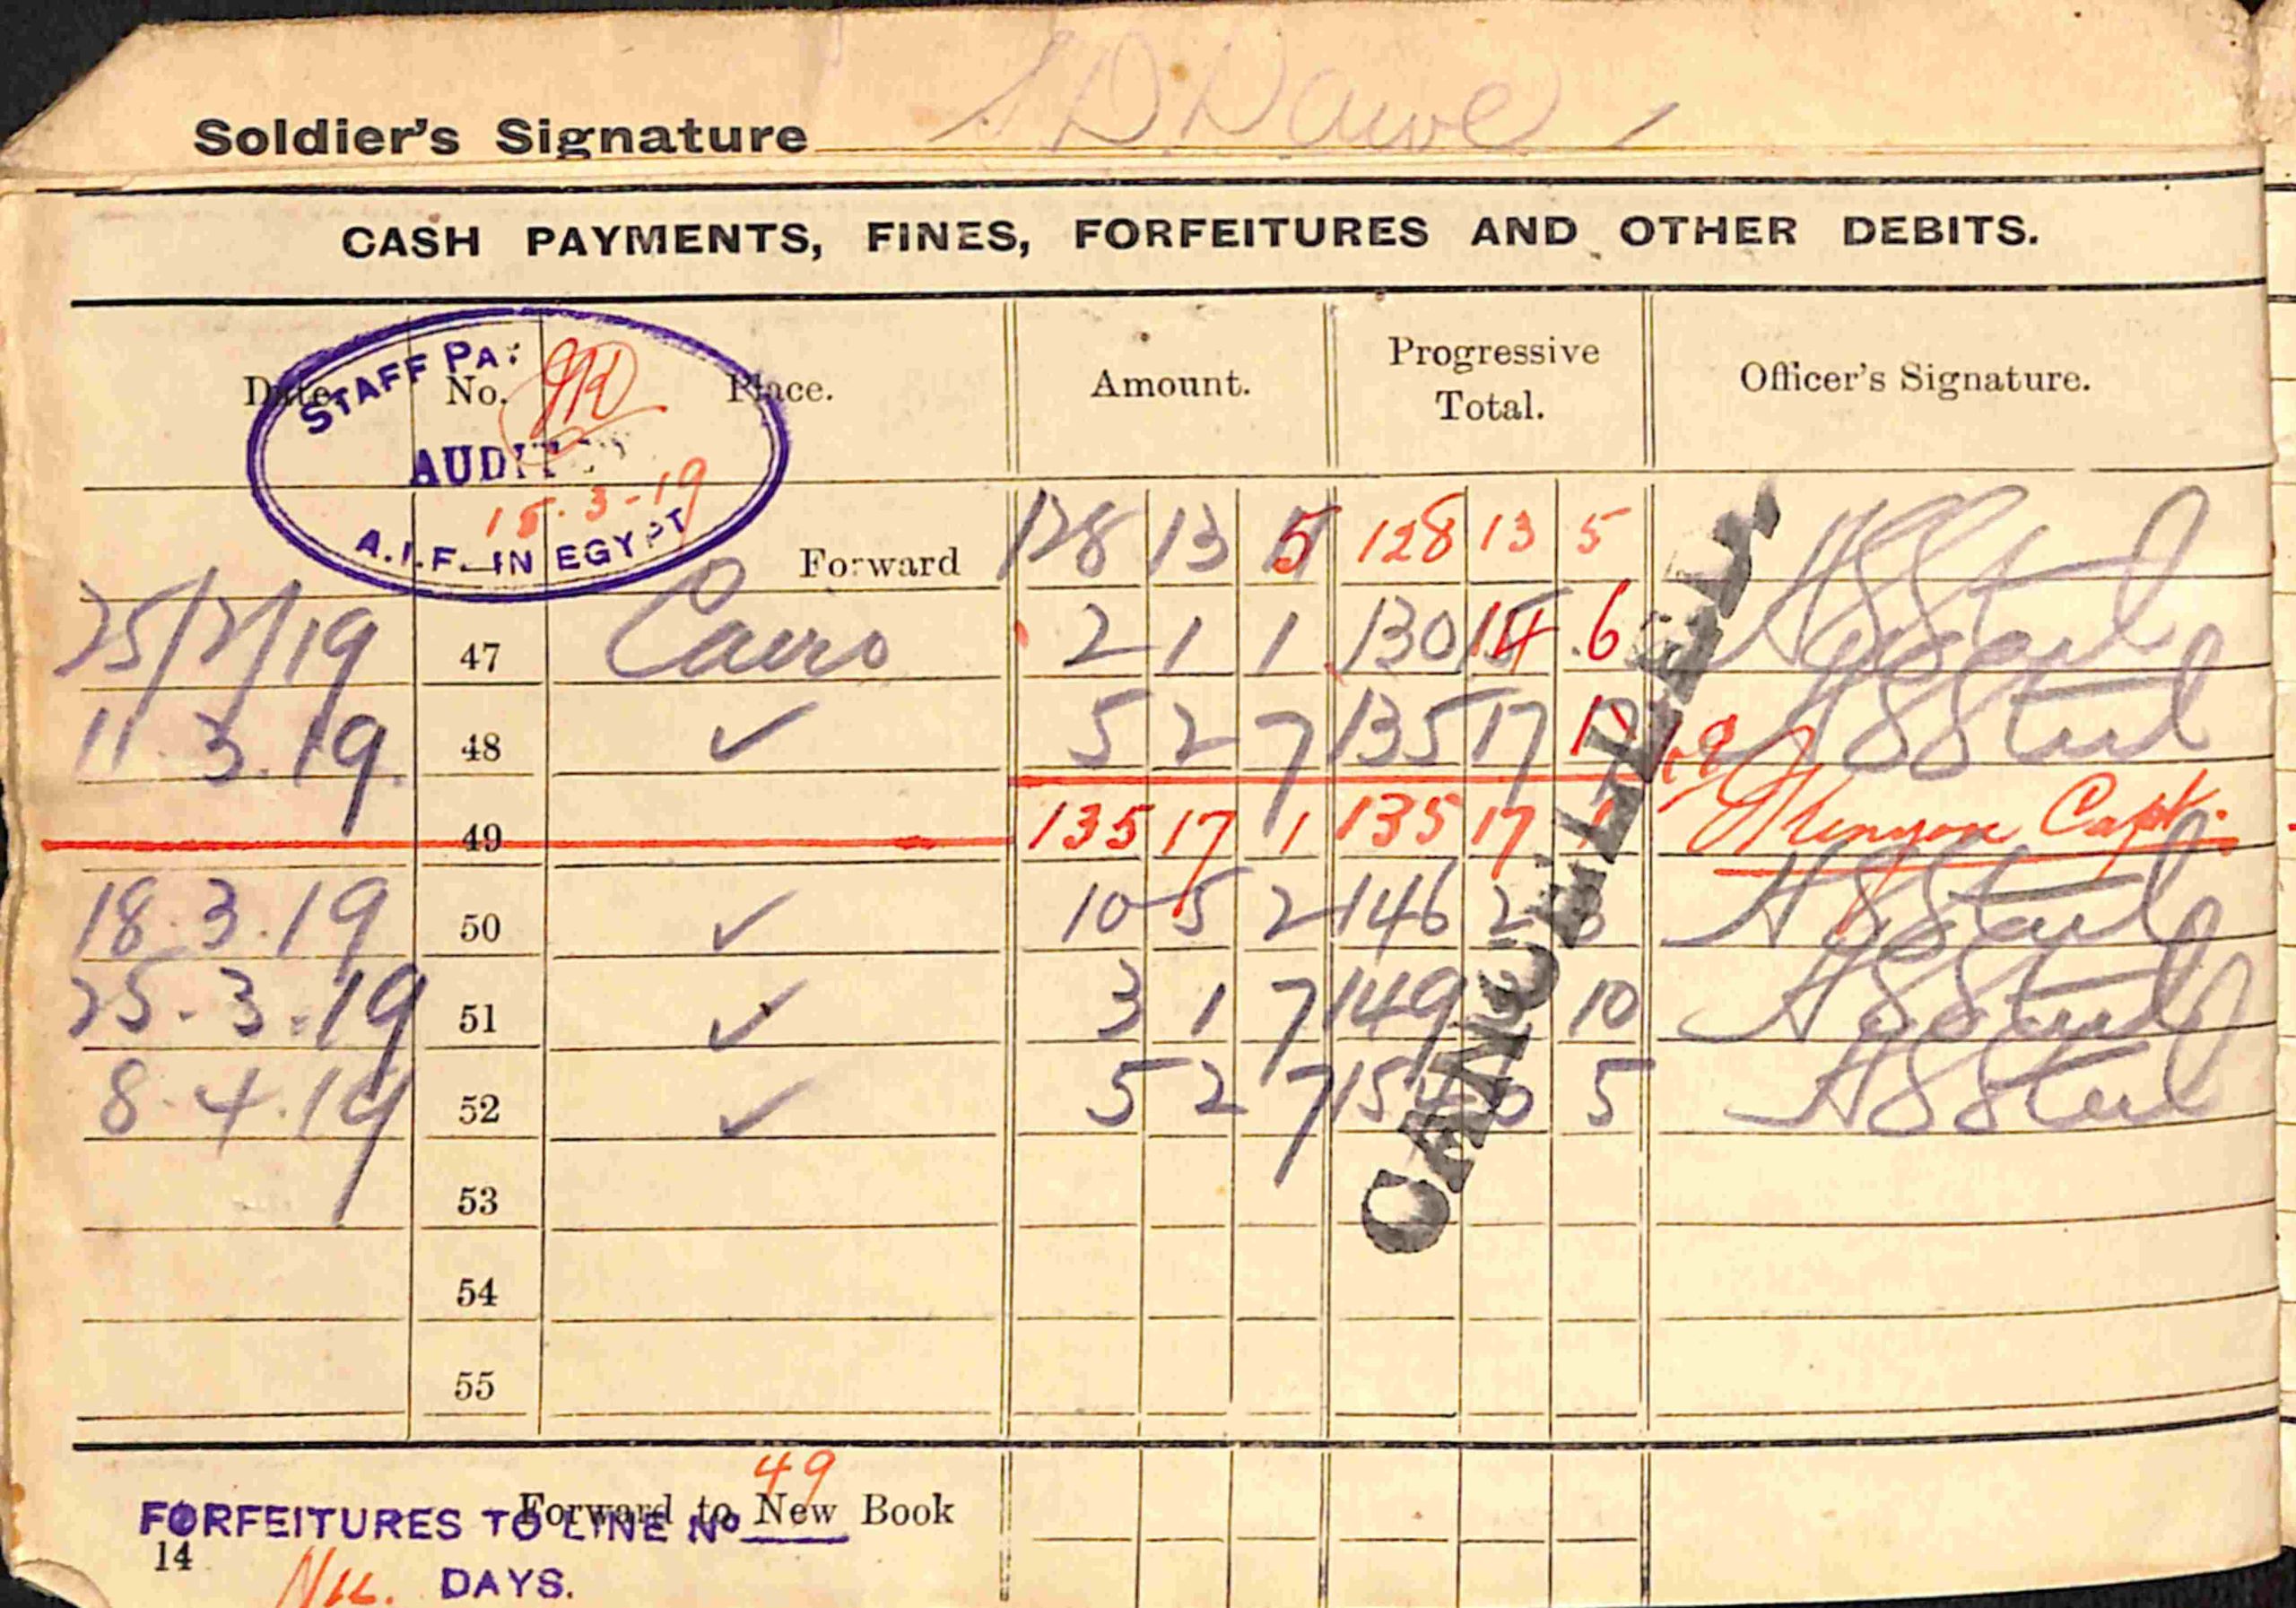 Soldier's Signature D Dawe
CASH PAYMENTS, FINES, FORFEITURES AND OTHER DEBITS.
Date. No. Place. Amount. Progressive Total. Officer's Signature.
STAFF PAY
AUDIT
15.3-19
A.I.F. IN EGYPT
Forward 128 13 5 128 13 5
25/2/19 47 Cairo 2 1 1 130 14 6
11.3.19. 48 ✓ 5 2 7 135 17 1
49 135 17 1 135 17 1 Capt.
18.3.19 50 ✓ 10 5 2 146 2
25.3.19 51 ✓ 3 1 7 149 10
8.4.19 52 ✓ 5 2 7 5
53
54
55
CANCELLED
Forward to New Book
FORFEITURES TO LINE No 49
14
Nil. DAYS.